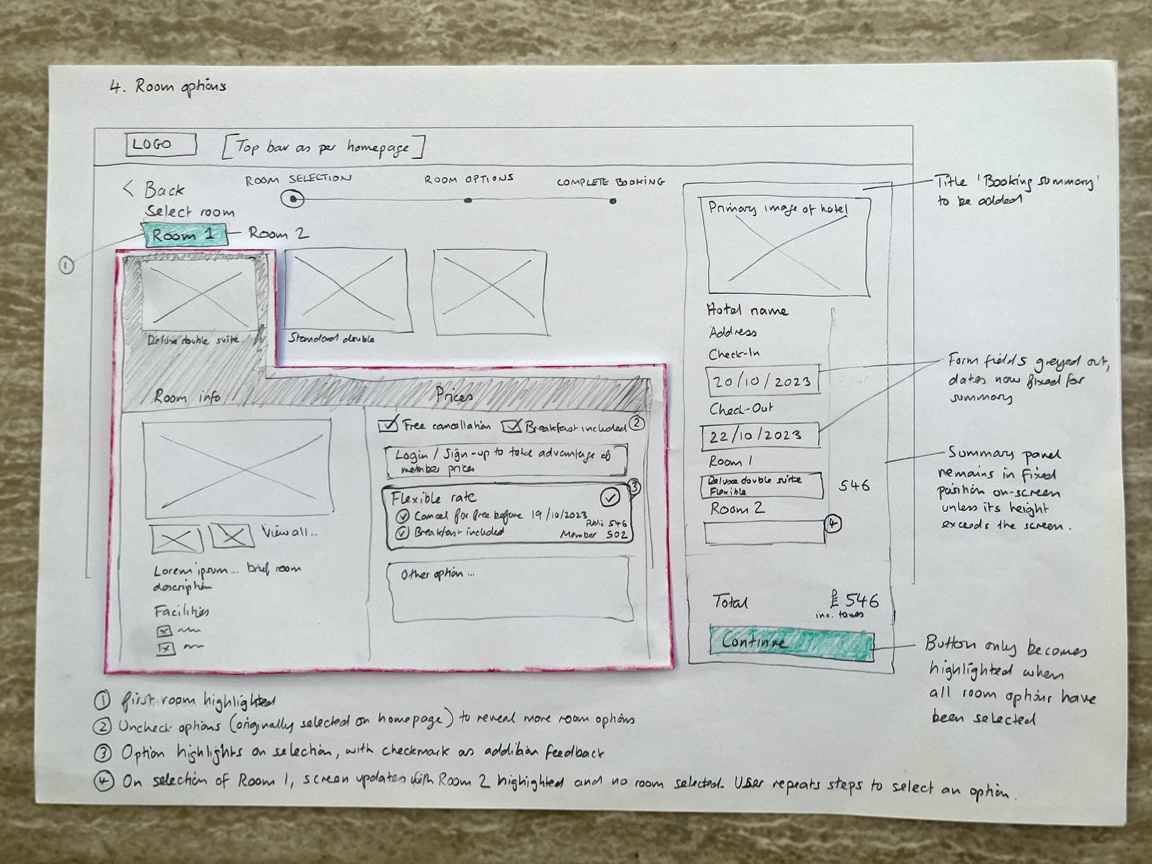 4. Room options
LOGO
[Top bar as per homepage]
< Back
ROOM SELECTION
ROOM OPTIONS
COMPLETE BOOKING
Select room
Room 1
Room 2
1
Deluxe double suite
Standard double
Room info
Prices
View all..
Lorem ipsum... brief room
description
Facilities
Free cancellation
Breakfast included
2
Login / Sign-up to take advantage of
member prices
3
Flexible rate
Cancel for free before 19/10/2023
Breakfast included
Public 546
Member 502
Other option...
Primary image of hotel
Hotel name
Address
Check-In
20/10/2023
Check-Out
22/10/2023
Room 1
Deluxe double suite
Flexible
546
Room 2
4
Total
£546
inc. taxes
Continue
Title 'Booking summary'
to be added
Form fields greyed out,
dates now fixed for
summary
Summary panel
remains in fixed
position on-screen
unless its height
exceeds the screen.
Button only becomes
highlighted when
all room options have
been selected
1 First room highlighted
2 Uncheck options (originally selected on homepage) to reveal more room options
3 Option highlights on selection, with checkmark as addition feedback
4 On selection of Room 1, screen updates with Room 2 highlighted and no room selected. User repeats steps to select an option.